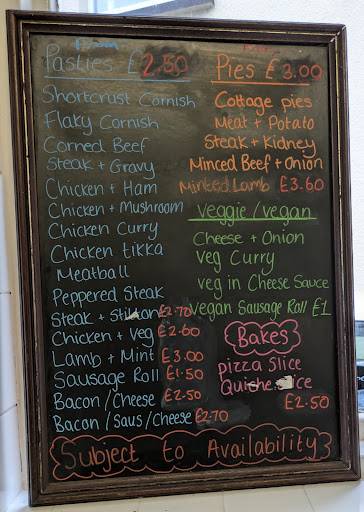 from
Pasties £2.50
Shortcrust Cornish
Flaky Cornish
Corned Beef
Steak + Gravy
Chicken + Ham
Chicken + Mushroom
Chicken Curry
Chicken tikka
Meatball
Peppered Steak
Steak + Stilton £2.70
Chicken + Veg £2.60
Lamb + Mint £3.00
Sausage Roll £1.50
Bacon / Cheese £2.50
Bacon / Saus / Cheese £2.70
Pies £3.00
Cottage pies
Meat + Potato
Steak + Kidney
Minced Beef + Onion
Minted Lamb £3.60
Veggie / vegan
Cheese + Onion
Veg Curry
veg in Cheese Sauce
vegan Sausage Roll £1
Bakes
pizza Slice
Quiche Slice
£2.50
Subject to Availability